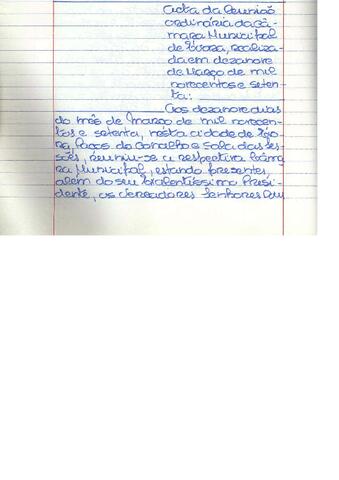 Acta da Reunião
ordinária da Câ-
mara Municipal
de Évora, realiza-
da em dezanove
de Março de mil
novecentos e seten-
ta:
Aos dezanove dias
do mês de Março de mil novecen-
tos e setenta, nesta cidade de Évo-
ra, Paços do Concelho e Sala das Ses-
sões, reuniu-se a respectiva Câma-
ra Municipal, estando presentes,
além do seu Excelentíssimo Presi-
dente, os Vereadores Senhores